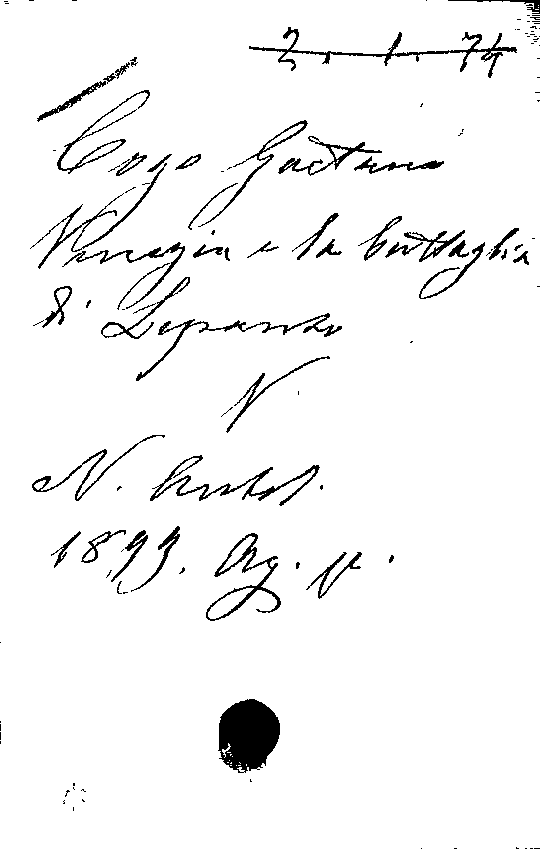 2. 1. 74
Cogo Gaetano
Venezia e la battaglia
di Lepanto
N
N. Antol.
1893. Ag.